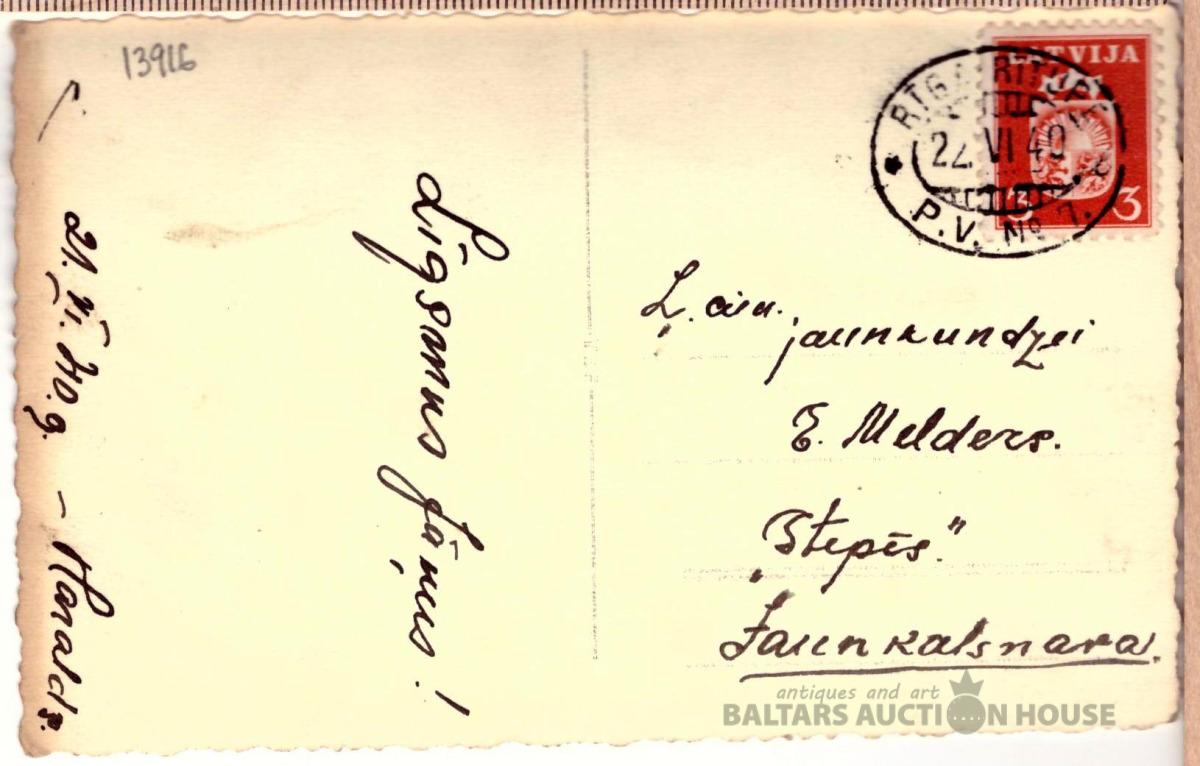 13916
Līgsmus Jāņus!
21. VI. 40.g. – Haralds.
LATVIJA
3 3
RĪGA
22. VI 40
P.V. № 7.
Ļ. cien. jaunkundzei
E. Melders.
"Stepēs."
Jaunkalsnava.
antiques and art
BALTARS AUCTION HOUSE